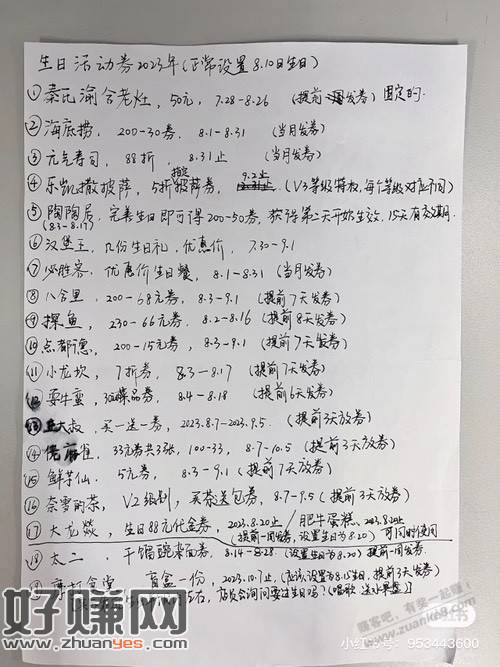 生日活动券2023年(正常设置8.10日生日)
①秦氏渝舍老灶，50元，7.28-8.26 (提前发券) 固定的
②海底捞，200-30券，8.1-8.31 (当月发券)
③元气寿司，88折，8.31止 (当月发券)
④乐凯撒披萨，5折指定披萨券，9.2止 (V3等级特权，每个等级对应不同)
⑤陶陶居，完善生日即可得200-50券，获得第二天开始生效，15天有效期
(8.3-8.17)
⑥汉堡王，几份生日礼，优惠价，7.30-9.1
⑦必胜客，优惠价生日餐，8.1-8.31 (当月发券)
⑧八合里，200-68元券，8.3-9.1 (提前7天发券)
⑨探鱼，230-66元券，8.2-8.16 (提前8天发券)
⑩点都德，200-15元券，8.3-9.1 (提前7天发券)
⑪小龙坎，7折券，8.3-8.17 (提前7天发券)
耍牛蛮，菜品券，8.4-8.18 (提前6天发券)
大叔，买一送一券，2023.8.7-2023.9.5，(提前3天放券)
⑭佬麻雀，33元券共3张，100-33，8.7-10.5 (提前3天放券)
⑮鲜芋仙，5元券，8.3-9.1 (提前7天放券)
⑯奈雪的茶，V2级别，买茶送包券，8.7-9.5 (提前3天放券)
⑰大龙燚，生日88元代金券，2023.8.20止 / 肥牛蛋糕，2023.8.20止
(提前一周发券，设置生日为8.20) 可同时使用
⑱太二，干锅碗来面券，8.14-8.28，(设置生日为8.20) 提前一周发券
盲盒一份，2023.10.7止，(应该设置为8.15生日，提前3天发券)
店员会询问要过生日吗？(唱歌 送水果盘)
好赚网
www.zhuanyes.com
赚客吧，有奖一起赚！
www.zuanke8.com
小红书号：953443600